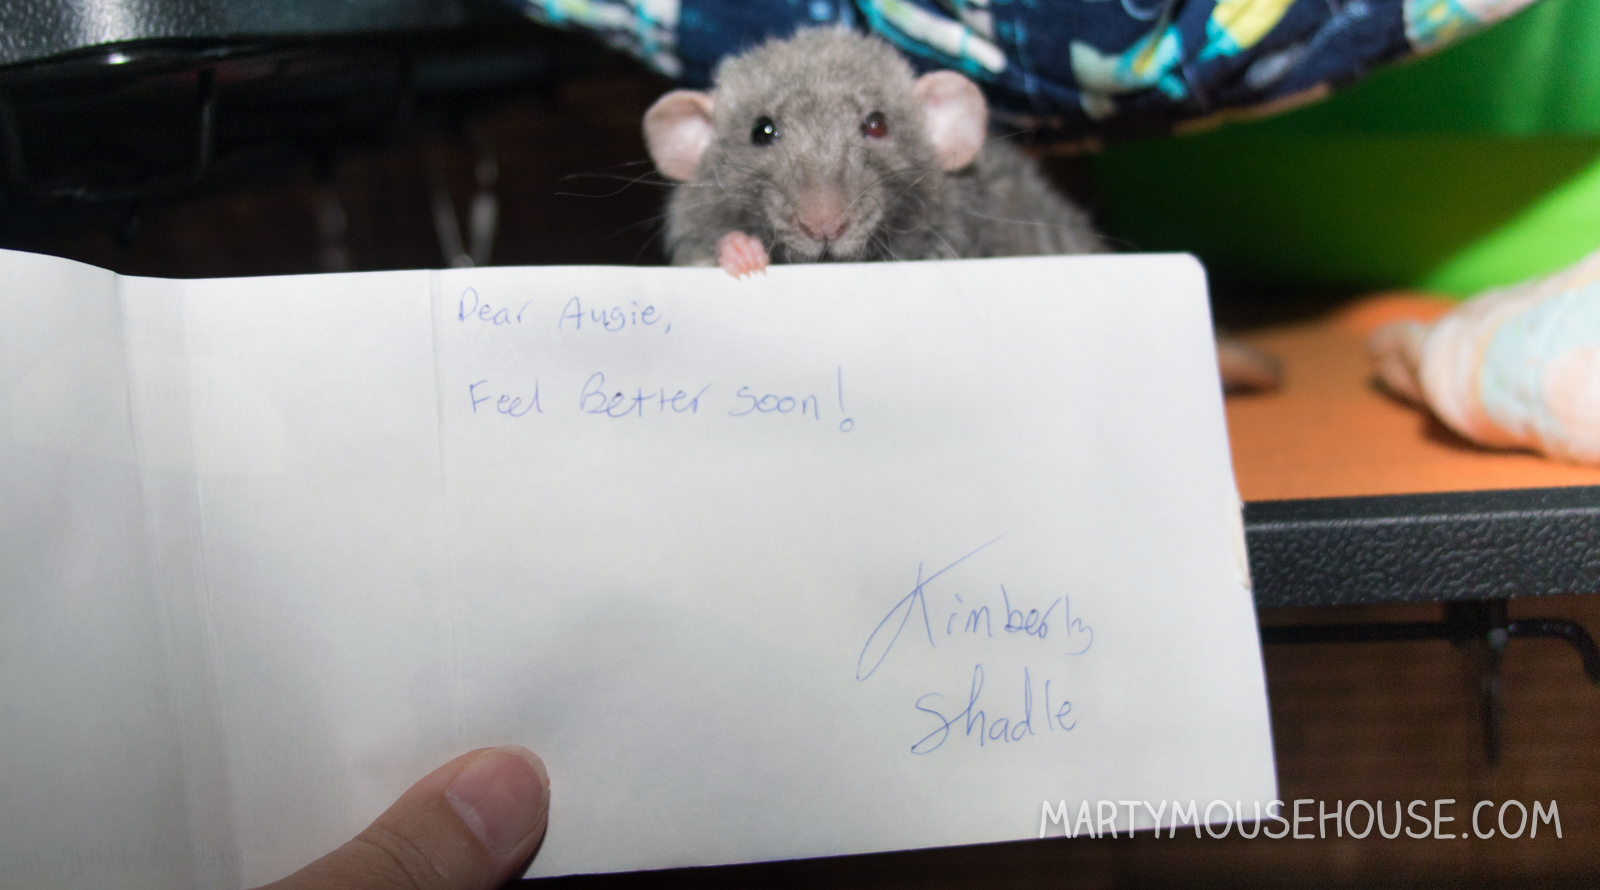 Dear Augie,
Feel Better Soon!
Kimberly
Shadle
MARTYMOUSEHOUSE.COM